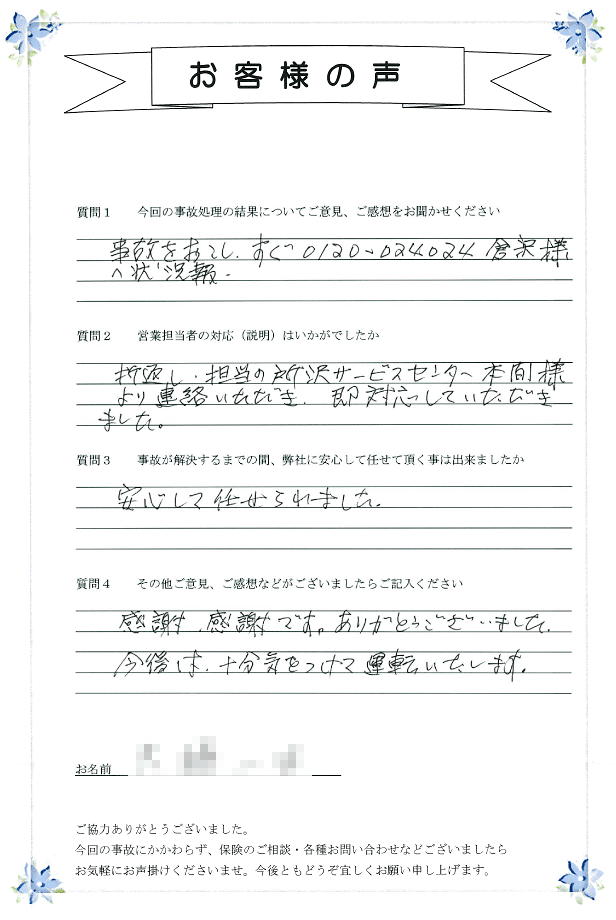 お客様の声
質問1 今回の事故処理の結果についてご意見、ご感想をお聞かせください
事故をおこし、すぐ0120-024024倉沢様
へ状況報。
質問2 営業担当者の対応（説明）はいかがでしたか
折返し・担当の所沢サービスセンター本間様
より連絡いただき、即対応していただき
ました。
質問3 事故が解決するまでの間、弊社に安心して任せて頂く事は出来ましたか
安心して任せられました。
質問4 その他ご意見、ご感想などがございましたらご記入ください
感謝、感謝です。ありがとうございました。
今後は、十分気をつけて運転いたします。
お名前
ご協力ありがとうございました。
今回の事故にかかわらず、保険のご相談・各種お問い合わせなどございましたら
お気軽にお声掛けくださいませ。今後ともどうぞ宜しくお願い申し上げます。